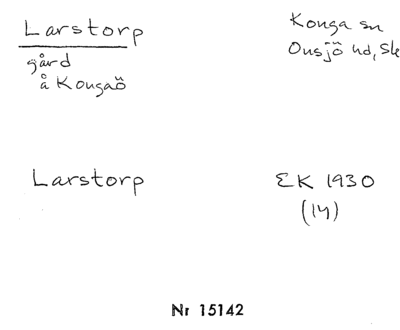 Larstorp
Konga sn
Onsjö hd, Sk
gård
å Kongaö
Larstorp
EK 1930
(14)
Nr 15142